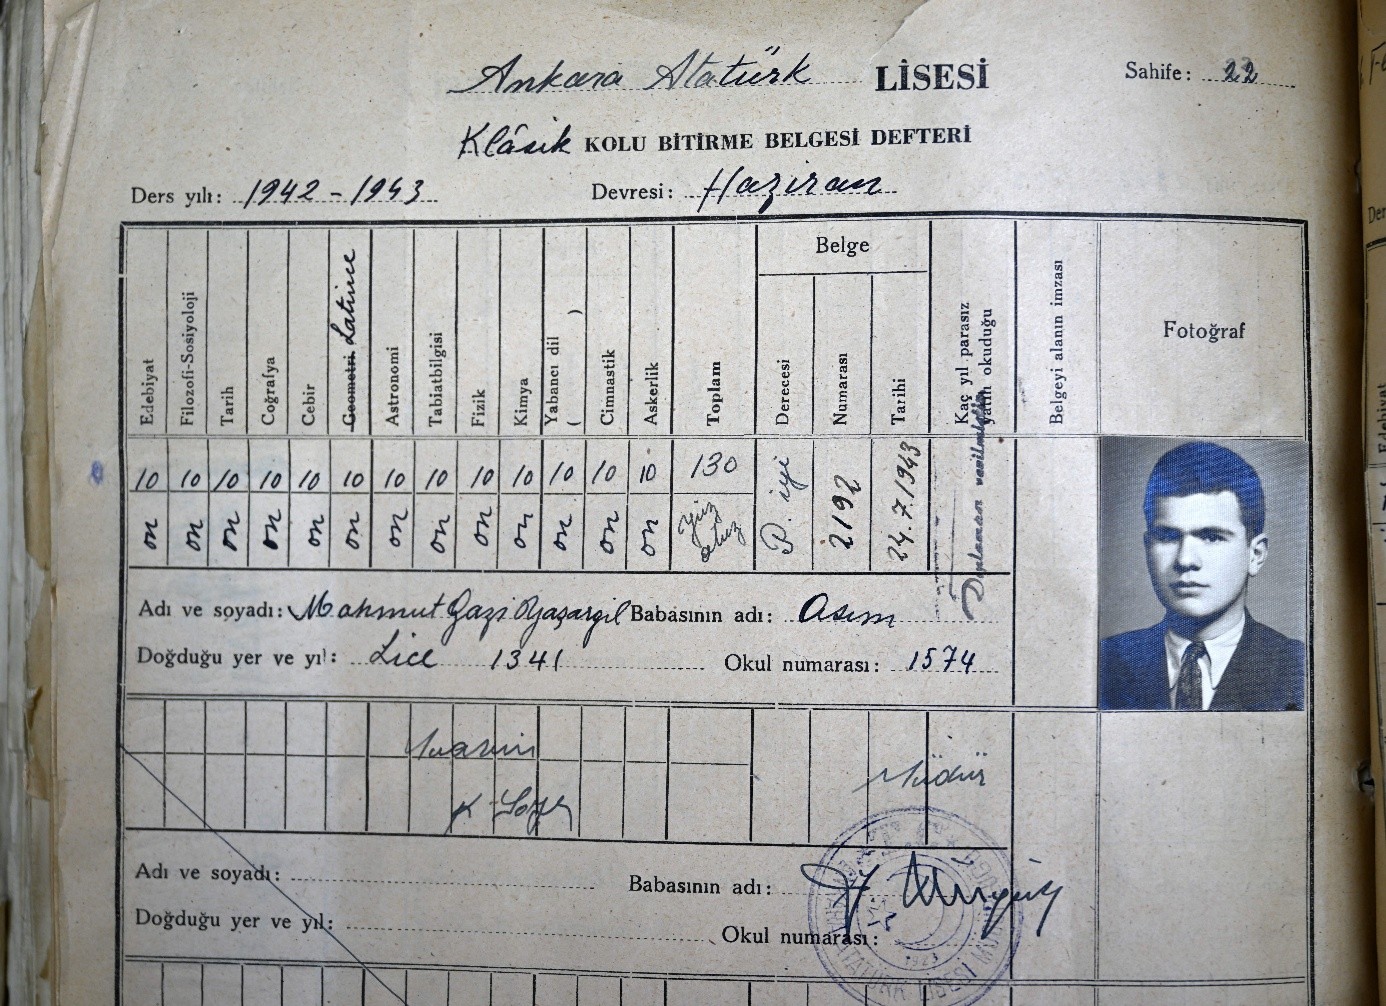 Ankara Atatürk LİSESİ
Sahife: 22
Klâsik KOLU BİTİRME BELGESİ DEFTERİ
Ders yılı: 1942-1943 Devresi: Haziran
Edebiyat
Filozofi-Sosiyoloji
Tarih
Coğrafya
Cebir
Geometri Latince
Astronomi
Tabiatbilgisi
Fizik
Kimya
Yabancı dil ( )
Cimnastik
Askerlik
Toplam
Belge
Derecesi
Numarası
Tarihi
Kaç yıl parasız yatılı okuduğu
Belgeyi alanın imzası
Fotoğraf
10 10 10 10 10 10 10 10 10 10 10 10 10 130
on on on on on on on on on on on on on yüz otuz
P. iyi
2192
24.7.1943
Adı ve soyadı: Mahmut Gazi Yaşargil Babasının adı: Asım
Doğduğu yer ve yıl: Lice 1341 Okul numarası: 1574
Muavin
Müdür
Adı ve soyadı: Babasının adı:
Doğduğu yer ve yıl: Okul numarası:
ATATÜRK LİSESİ
1923
Edebiyat